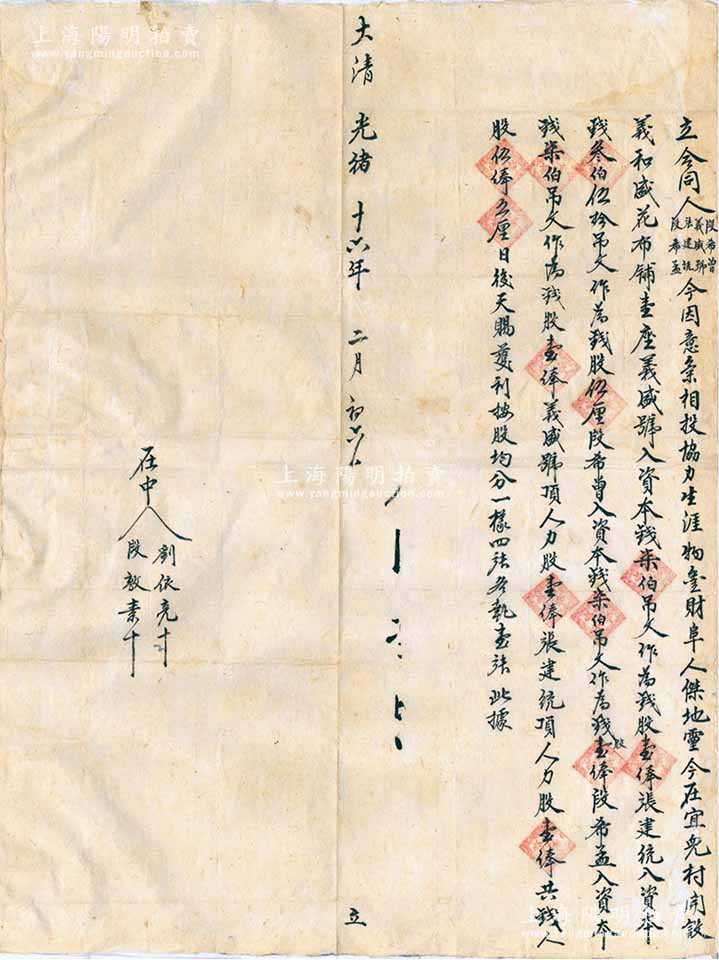 立合同人段希曾義盛號張建統段希孟今因意氣相投協力生涯物豐財阜人傑地靈今在宜兒村開設
義和盛花布鋪壹座義盛號入資本錢柒伯吊文作為錢股壹俸張建統入資本
錢叁伯伍拾吊文作為錢股伍厘段希曾入資本錢柒伯吊文作為錢股壹俸段希孟入資本
錢柒伯吊文作為錢股壹俸義盛號頂人力股壹俸張建統頂人力股壹俸共錢人
股伍俸五厘日後天賜獲利按股均分一樣四張各執壹張此據
大清光緒十六年二月初六日 立
在中人
劉依亮十
段敦素十
上海陽明拍賣
www.yangmingauction.com
上海陽明拍賣
www.yangmingauction.com
上海陽明拍賣
www.yangmingauction.com